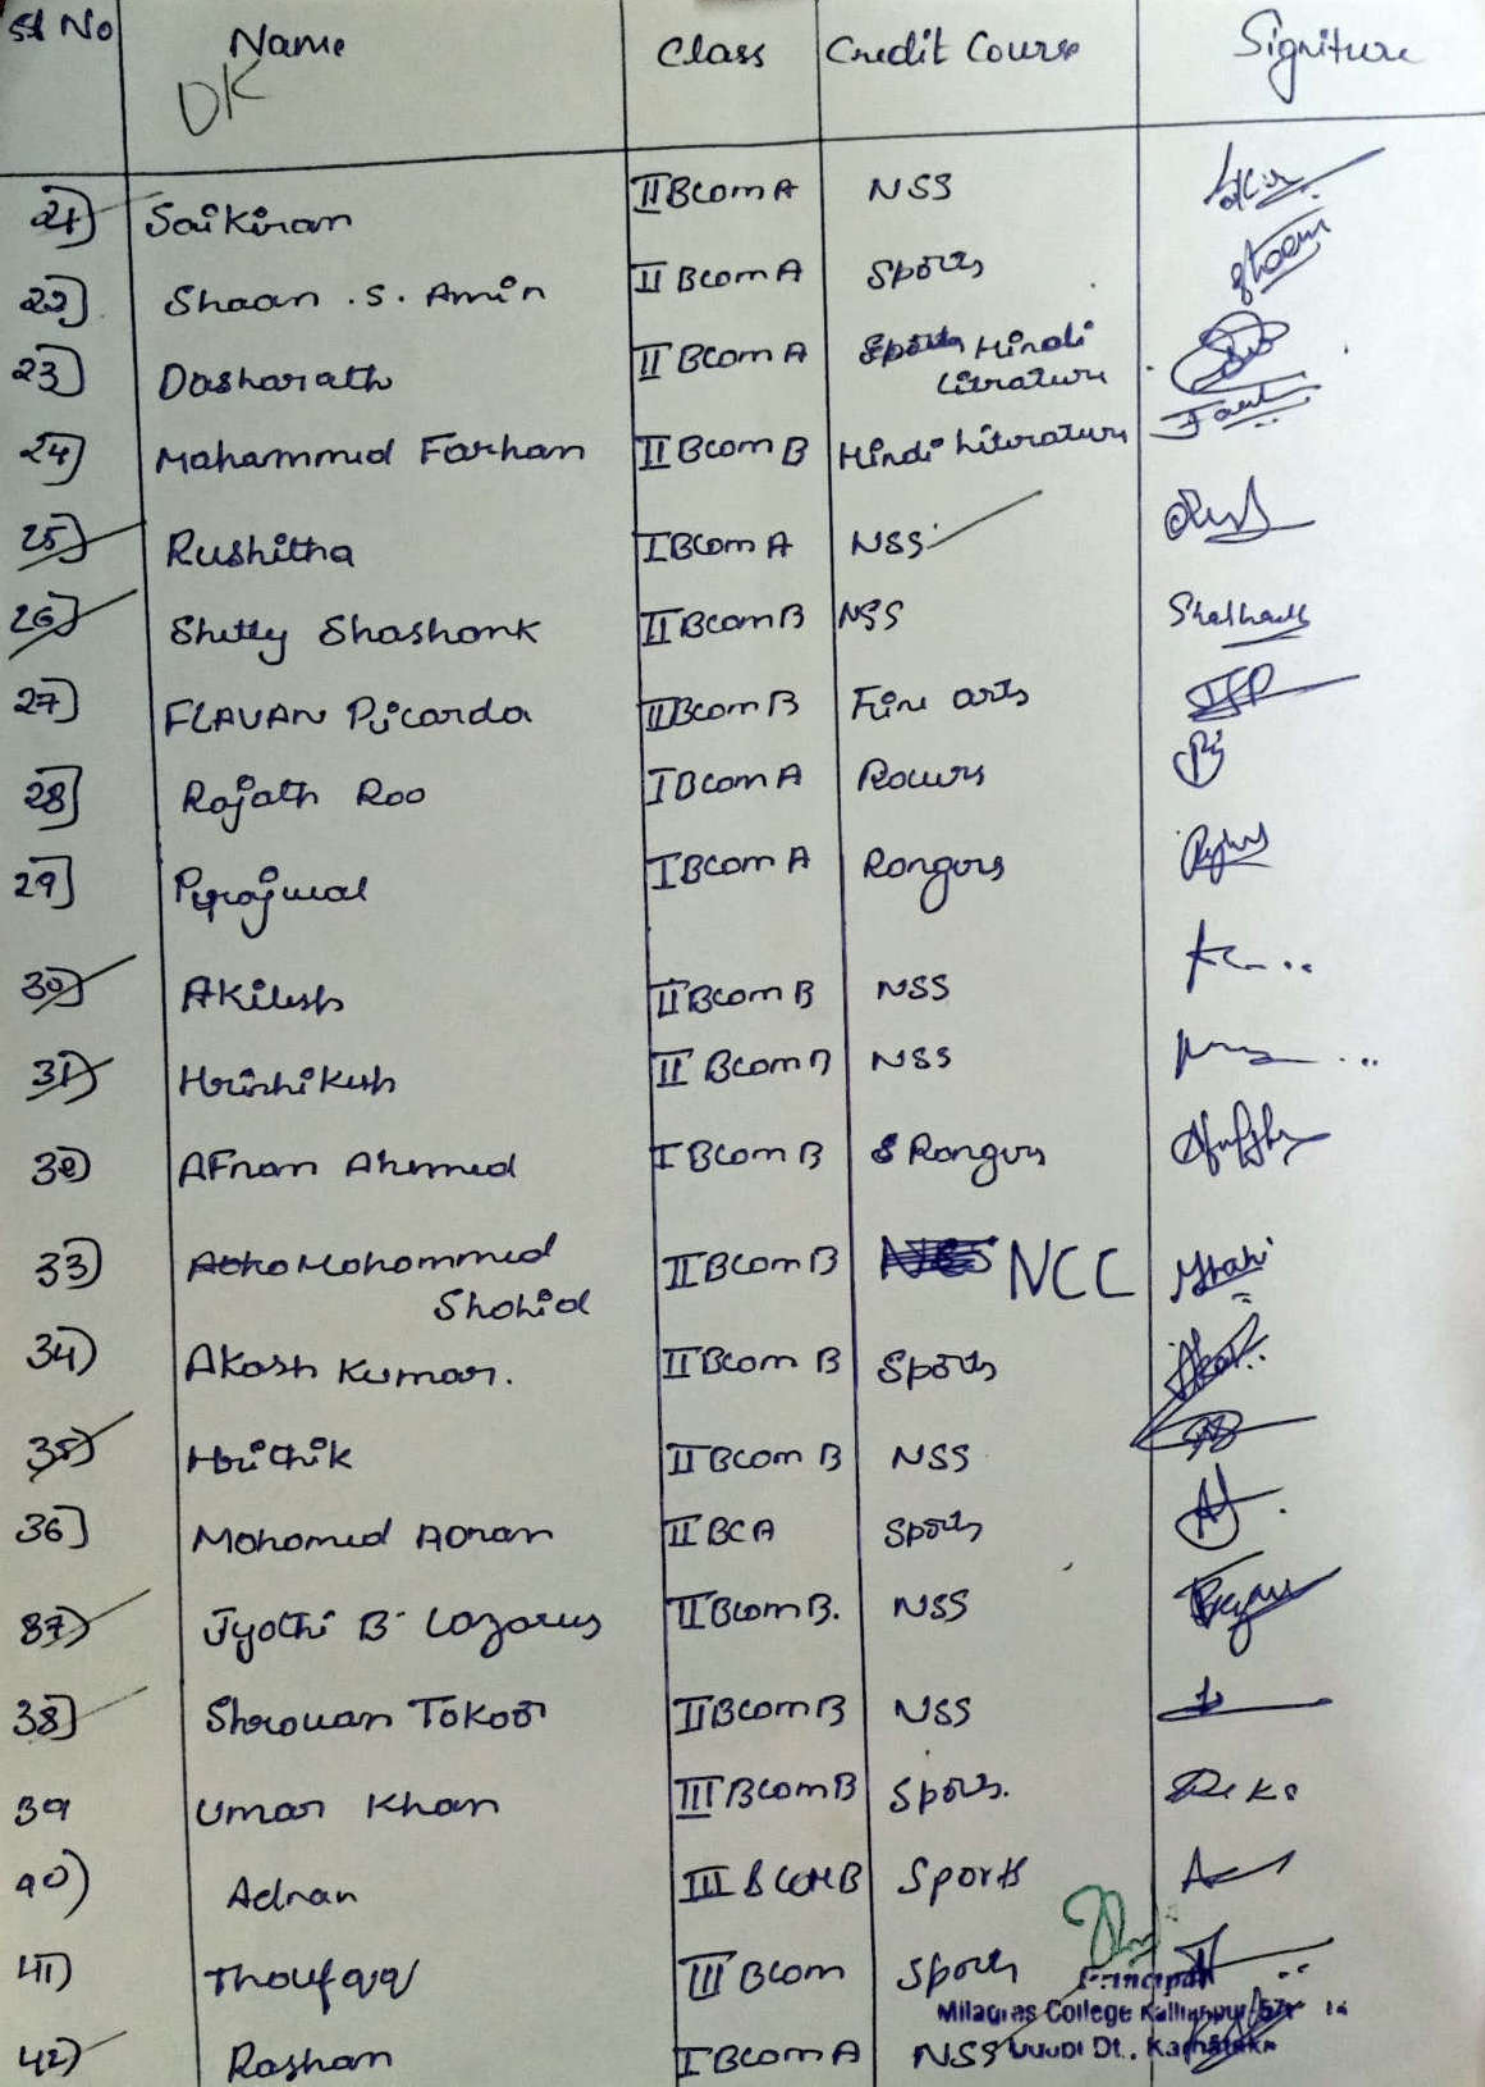 Sl No Name Class Credit Course Signiture
OK
21) Saikiran II Bcom A NSS
22) Shaan . S. Amin II Bcom A Sports
23) Dasharath II Bcom A Sports Hindi
Litrature
24) Mohammed Farhan II Bcom B Hindi Literature
25) Rushitha I Bcom A NSS
26) Shetty Shashank II Bcom B NSS
27) FLAVAN Picarda II Bcom B Fine arts
28) Rajath Rao I Bcom A Rovers
29) Prajwal I Bcom A Rangers
30) Akilesh II Bcom B NSS
31) Hrishikesh II Bcom NSS
32) AFnan Ahemed I Bcom B Rangers
33) Mohammed II Bcom B NCC
Shahid
34) Akash Kumar. II Bcom B Sports
35) Hrithik II Bcom B NSS
36) Mohamed Adnan II BCA Sports
37) Jyothi B Lazarus II Bcom B. NSS
38) Shravan Tokoor II Bcom B NSS
39 Umar Khan III Bcom B Sports.
40) Adnan III BCOM B Sports
41) Thoufaqq III Bcom Sports
Principal
Milagres College Kallianpur
42) Rashan I Bcom A NSS Udupi Dt., Karnataka